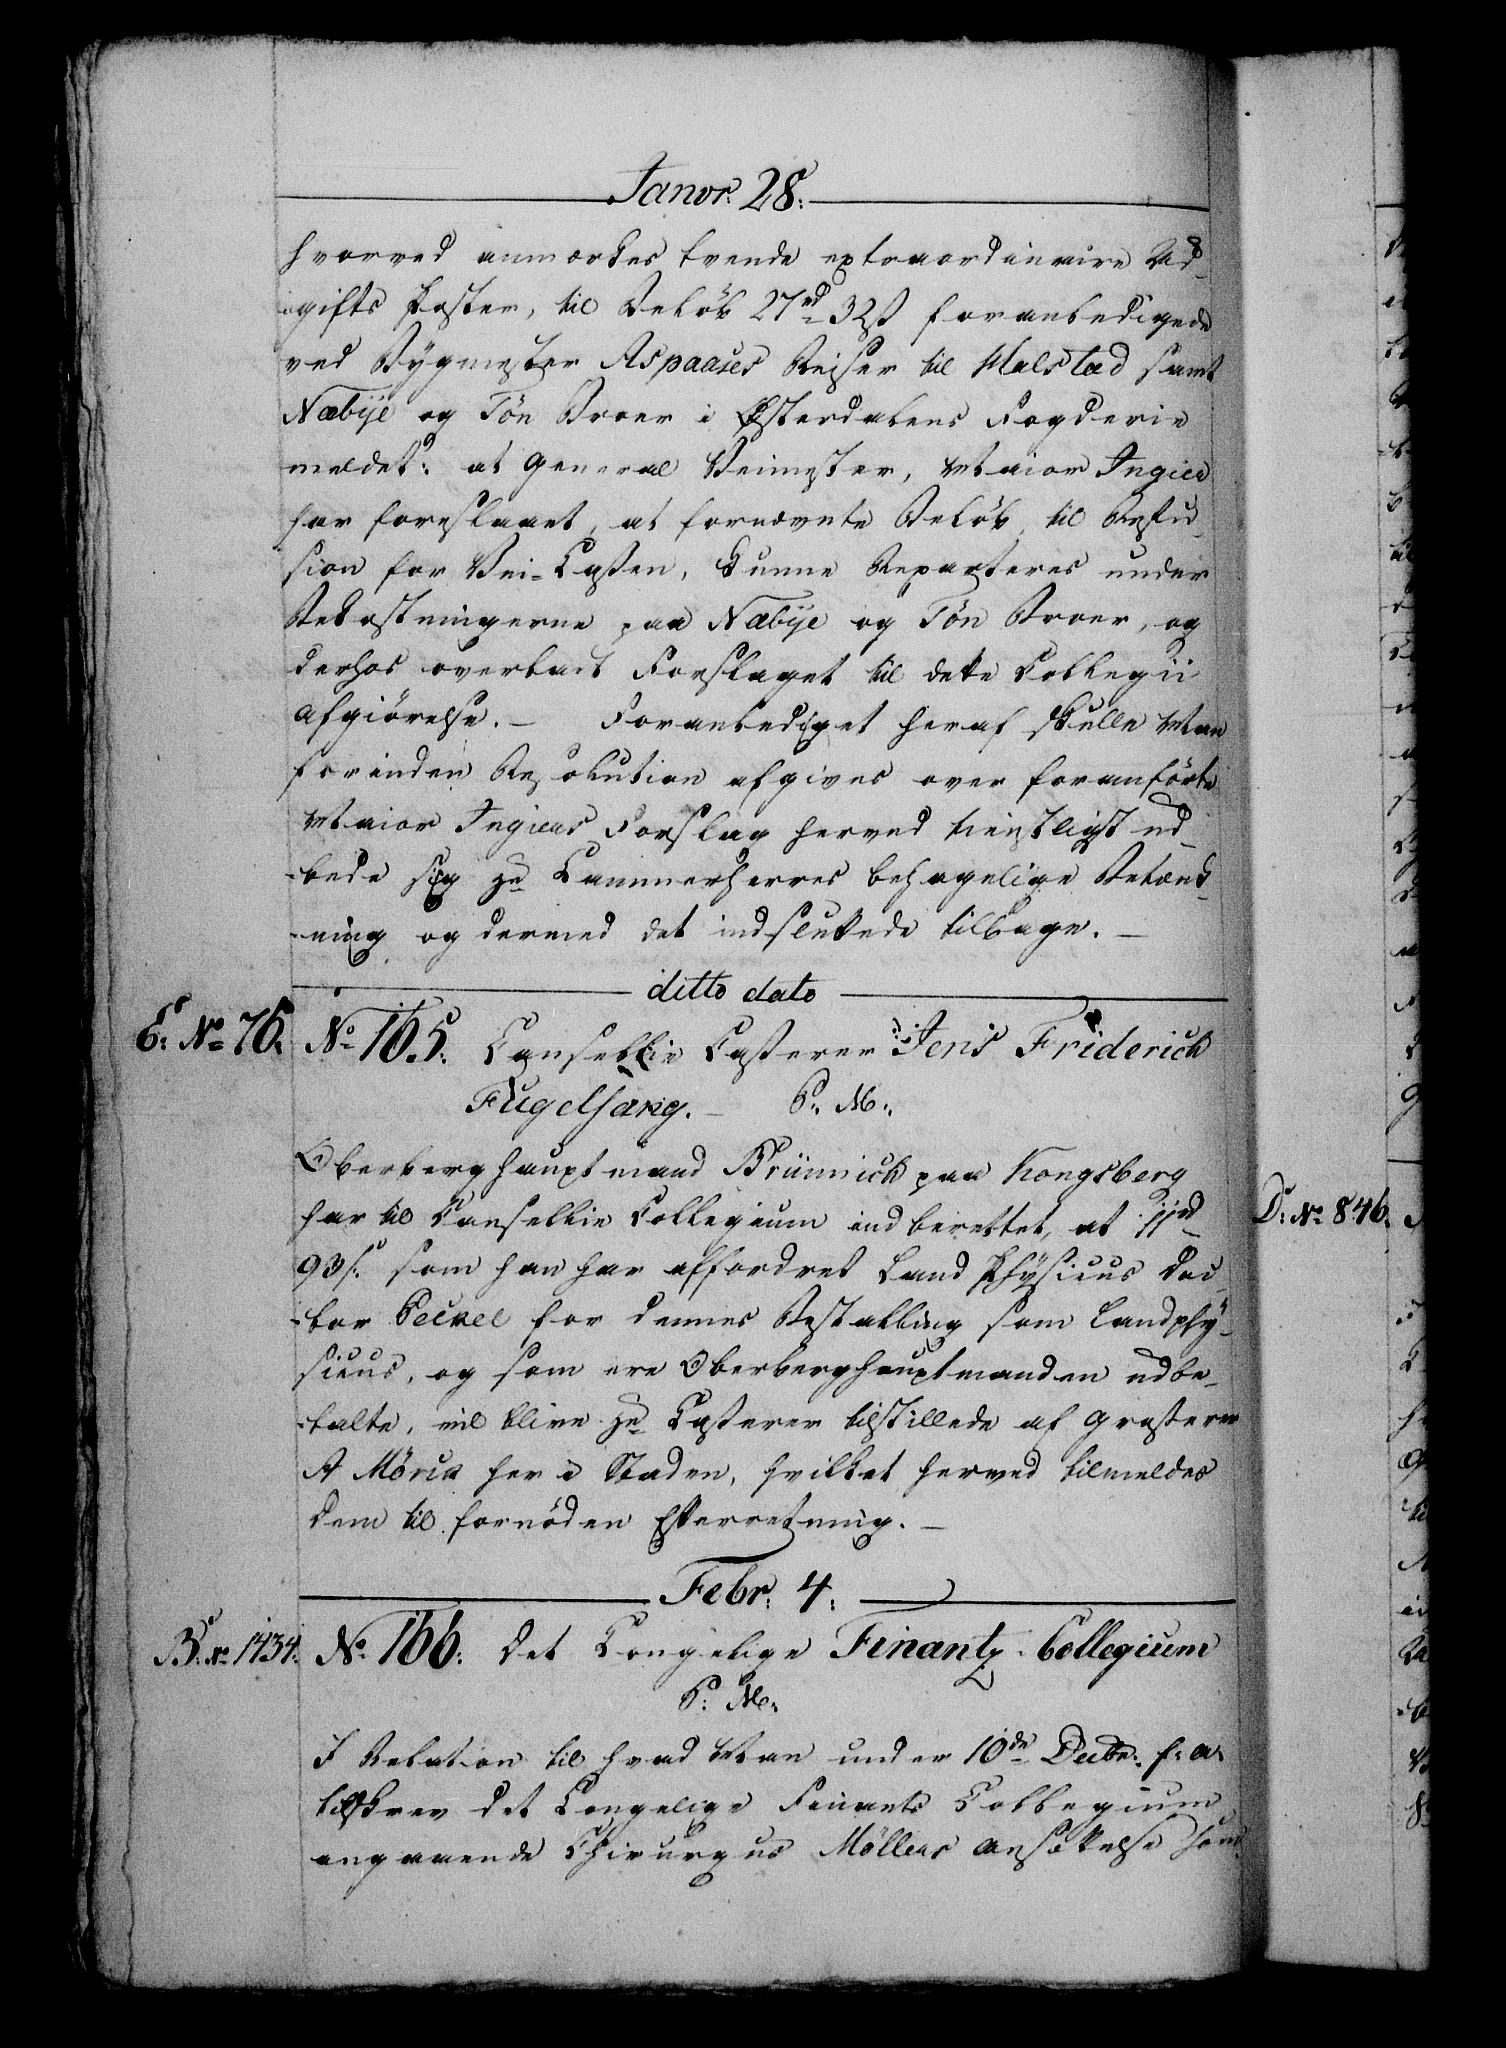 Janvr: 28.
hvorved anmærkes tvende extraordinaire Ud¬
gifts Poster, til Beløb 27rd 32ß foranledigede
ved Bygmester Aspaases Reiser til Halstad samt
Næbye og Tön Broer i Østerdalens Fogderie
meldet: at General Veimester, Maior Ingier
har foreslaaet, at fornævnte Beløb, til Refu¬
sion for Vei-Cassen, kunne Reparteres under
Bekostningerne paa Næbye og Tön Broer, og
derhos overladt Forslaget til dette Collegii
Afgiørelse. – Foranlediget heraf skulle Man
forinden Resolution afgives over foranførte
Maior Ingiers Forslag herved tienstligst ud¬
bede sig Hr Cammerherres behagelige Betænk¬
ning og dermed det indsluttede tilbage. –
ditto dato
E: No 76. No 165. Cancellie Casserer Jens Friderich
Fugelsang. – P: M:
Oberberghauptmand Brünnich paa Kongsberg
har til Cancellie Collegium indberettet, at 11rd
93ß. som han har affordret Land Physicus Doc¬
tor Peckel for dennes Bestalling som Landphy¬
sicus, og som ere Oberberghauptmanden udbe¬
talte, vil blive Hr Casserer tilstillede af Grosserer
A Mörck her i Staden, hvilket herved tilmeldes
Dem til fornöden Efterretning. –
Febr: 4:
B: No 1434. No 166: Det Kongelige Finantz-Collegium
P: M:
I Relation til hvad Man under 10de Decbr: f: a:
tilskrev det Kongelige Finants Collegium
angaaende Chirurgus Möllers Ansøkelse som
D: No 846.